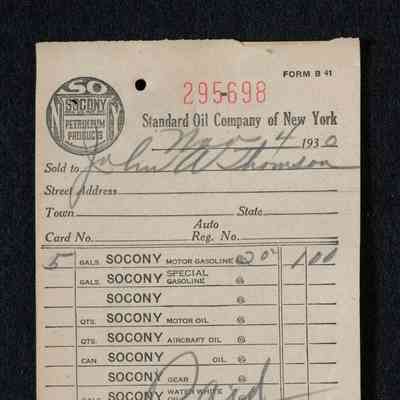 FORM B 41
295698
SO
SOCONY
PETROLEUM
PRODUCTS
Standard Oil Company of New York
Nov 4 1930
Sold to John A Thomson
Street Address
Town State
Auto
Card No. Reg. No.
5 GALS. SOCONY MOTOR GASOLINE @ 20¢ 1 00
GALS. SOCONY SPECIAL GASOLINE @
SOCONY @
QTS. SOCONY MOTOR OIL @
QTS. SOCONY AIRCRAFT OIL @
CAN SOCONY OIL @
SOCONY GEAR @
SOCONY WATER WHITE
Paid